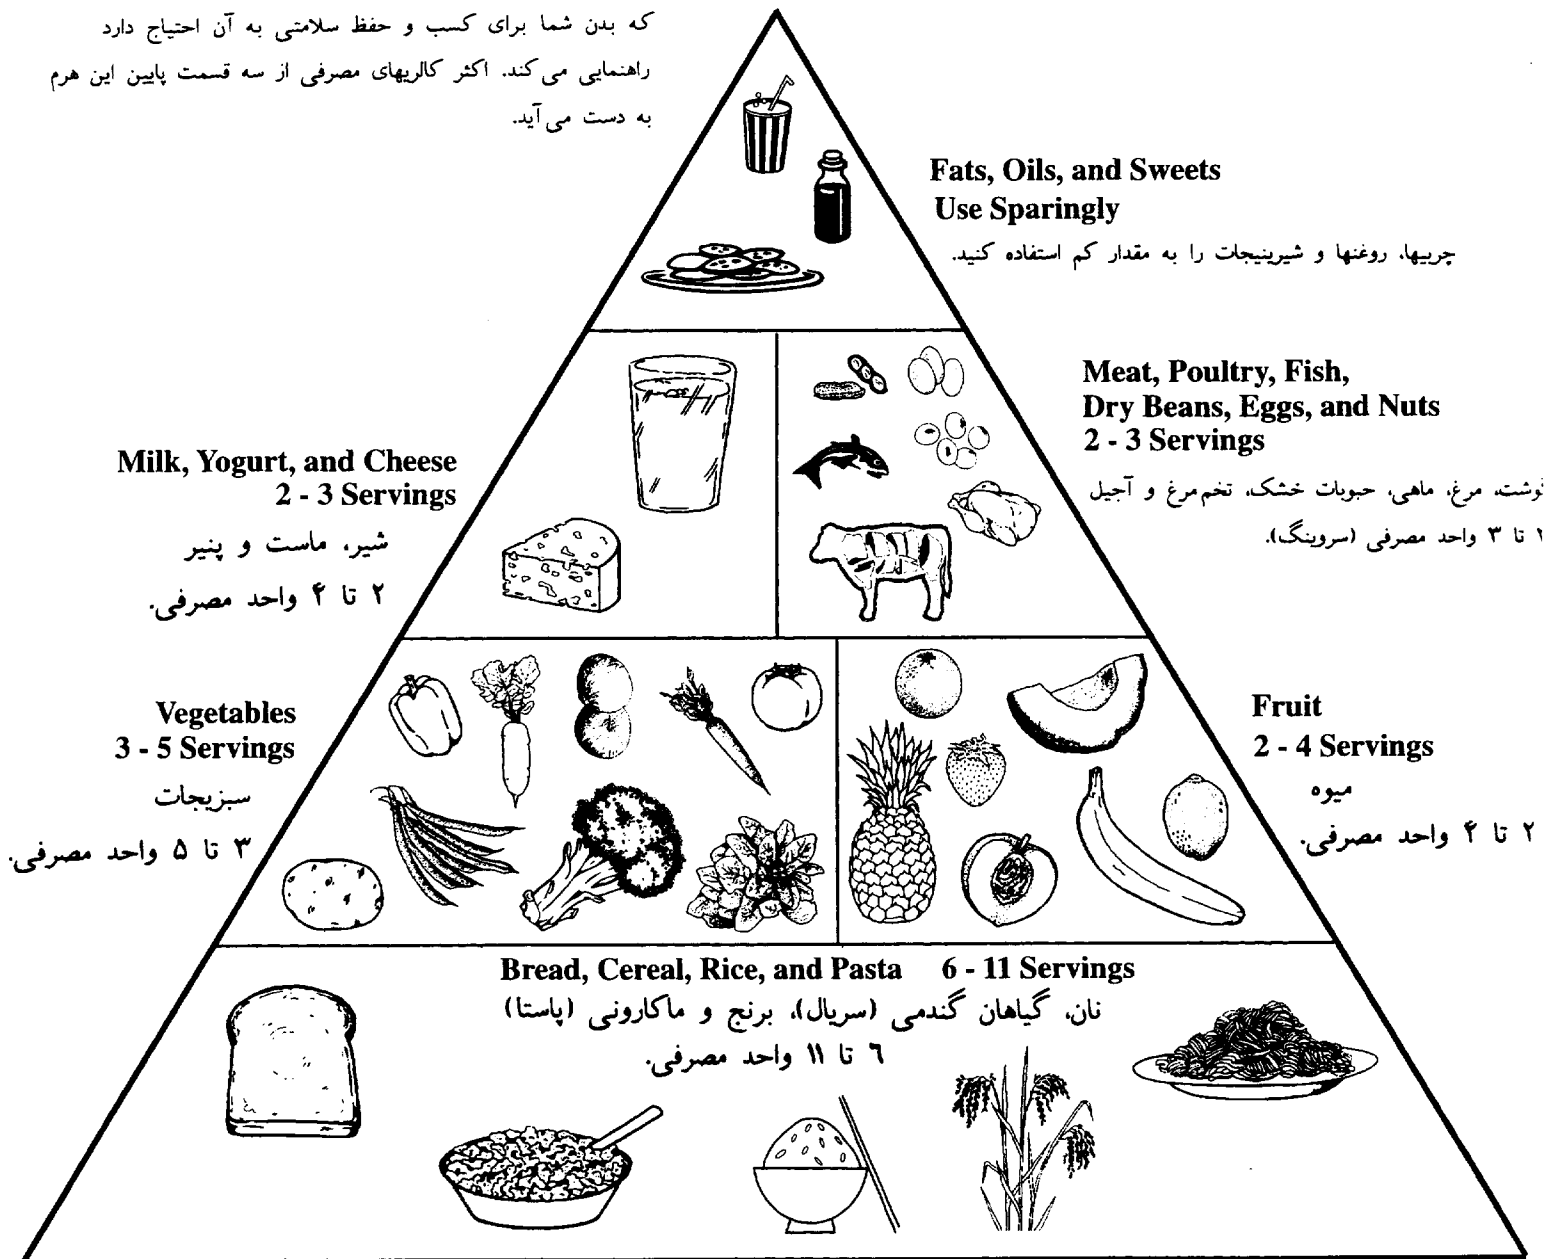 که بدن شما برای کسب و حفظ سلامتی به آن احتیاج دارد
راهنمایی می‌کند. اکثر کالریهای مصرفی از سه قسمت پایین این هرم
به دست می‌آید.
Fats, Oils, and Sweets
Use Sparingly
چربیها، روغنها و شیرینیجات را به مقدار کم استفاده کنید.
Meat, Poultry, Fish,
Dry Beans, Eggs, and Nuts
2 - 3 Servings
گوشت، مرغ، ماهی، حبوبات خشک، تخم‌مرغ و آجیل
۲ تا ۳ واحد مصرفی (سروینگ).
Milk, Yogurt, and Cheese
2 - 3 Servings
شیر، ماست و پنیر
۲ تا ۴ واحد مصرفی.
Vegetables
3 - 5 Servings
سبزیجات
۳ تا ۵ واحد مصرفی.
Fruit
2 - 4 Servings
میوه
۲ تا ۴ واحد مصرفی.
Bread, Cereal, Rice, and Pasta 6 - 11 Servings
نان، گیاهان گندمی (سریال)، برنج و ماکارونی (پاستا)
۶ تا ۱۱ واحد مصرفی.